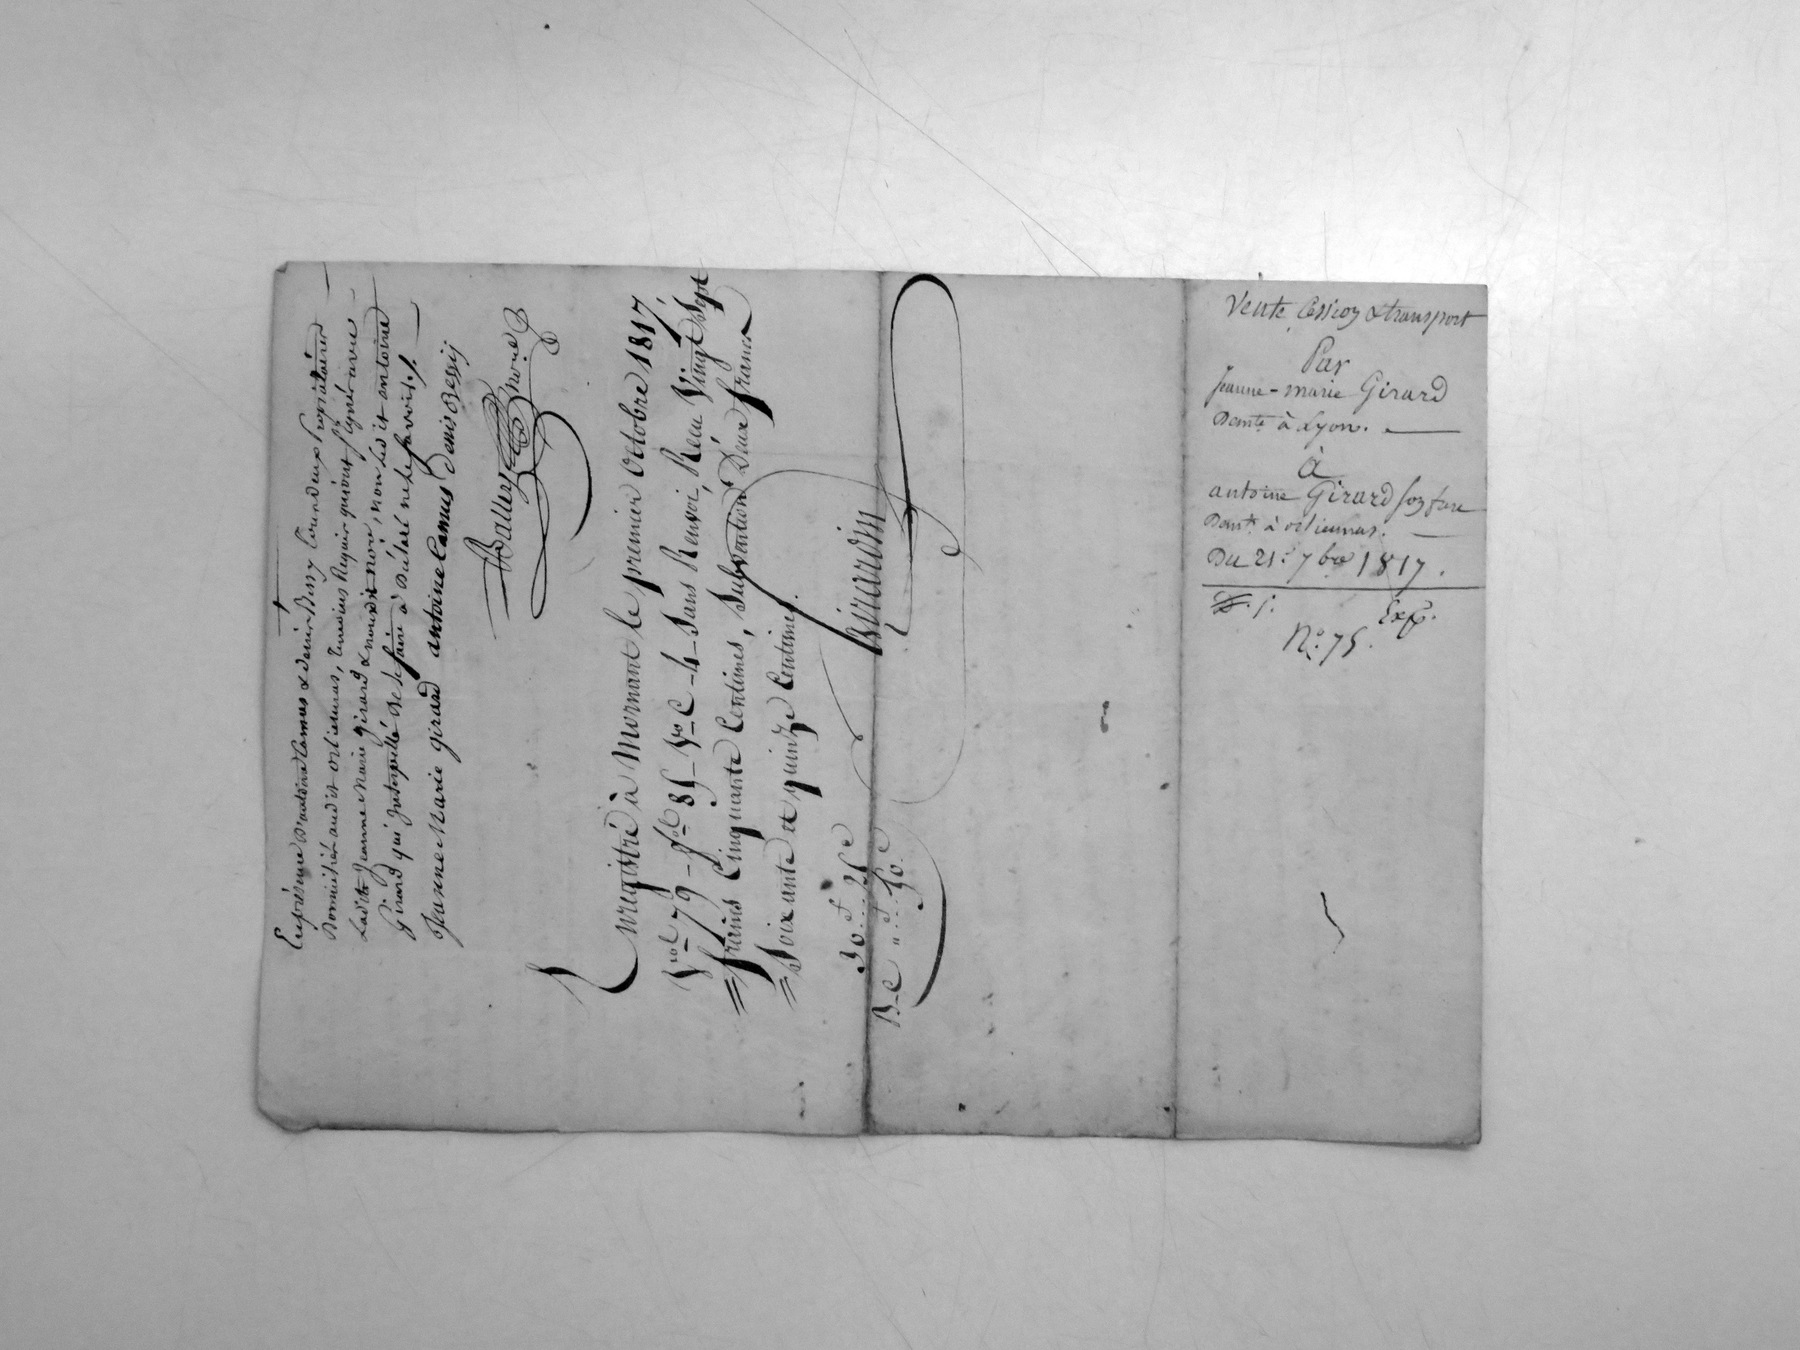 En présence d'antoine Camus & denis Bessy tous deux Propriétaires
Domiciliés audit orlienas, Temoins Requis qui ont signé avec
Ladite Jeanne Marie girard & nousdit no.re, non Ledit antoine
Girard qui interpellé de le faire a Déclaré ne le savoir./.
Jeanne Marie girard antoine Camus denis Bessy
Balley no.re
Enregistré à Mornant le premier Octobre 1817,
Vol 79 – fol 85 – Vo C – 4 – Sans Renvoi, Reçu Vingt Sept
francs Cinquante Centimes, Subvention Deux francs
Soixante et quinze Centimes.
Girardin
30.f.. 25c
B-C " f.. 50c
Vente, Cession & transport
Par
Jeanne-marie Girard
Demte à Lyon.
à
antoine Girard son frere
Demt à orlienas.
Du 21. 7bre 1817.
Exp.
No. 75.